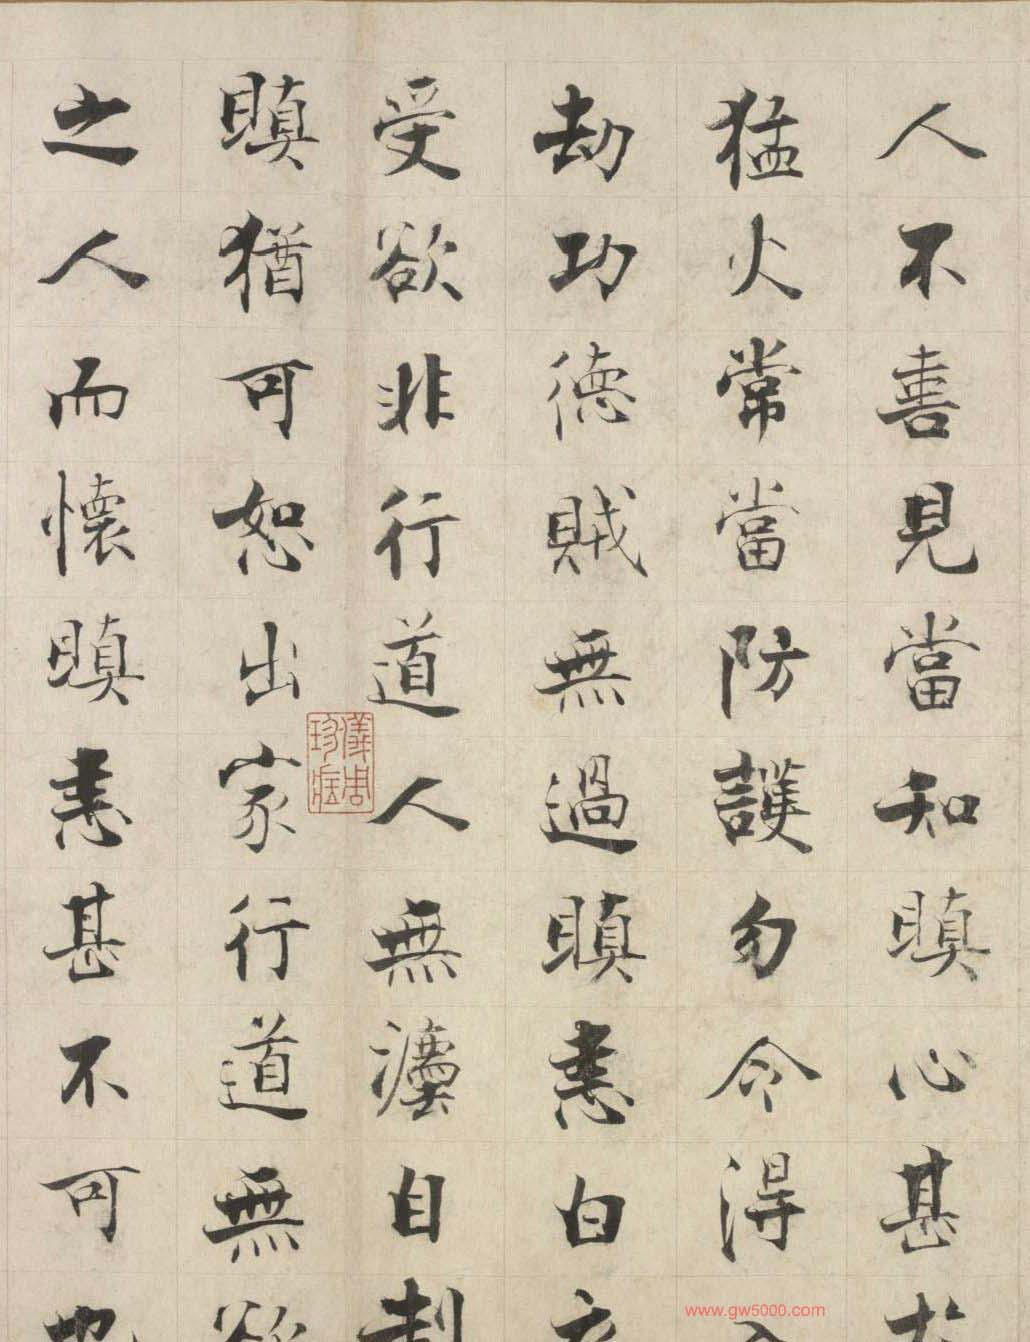 人不善見當知瞋心甚於
猛火常當防護勿令得入
劫功德賊無過瞋恚白衣
受欲非行道人無法自制
瞋猶可恕出家行道無欲
之人而懷瞋恚甚不可也
儀周珍藏
www.gw5000.com